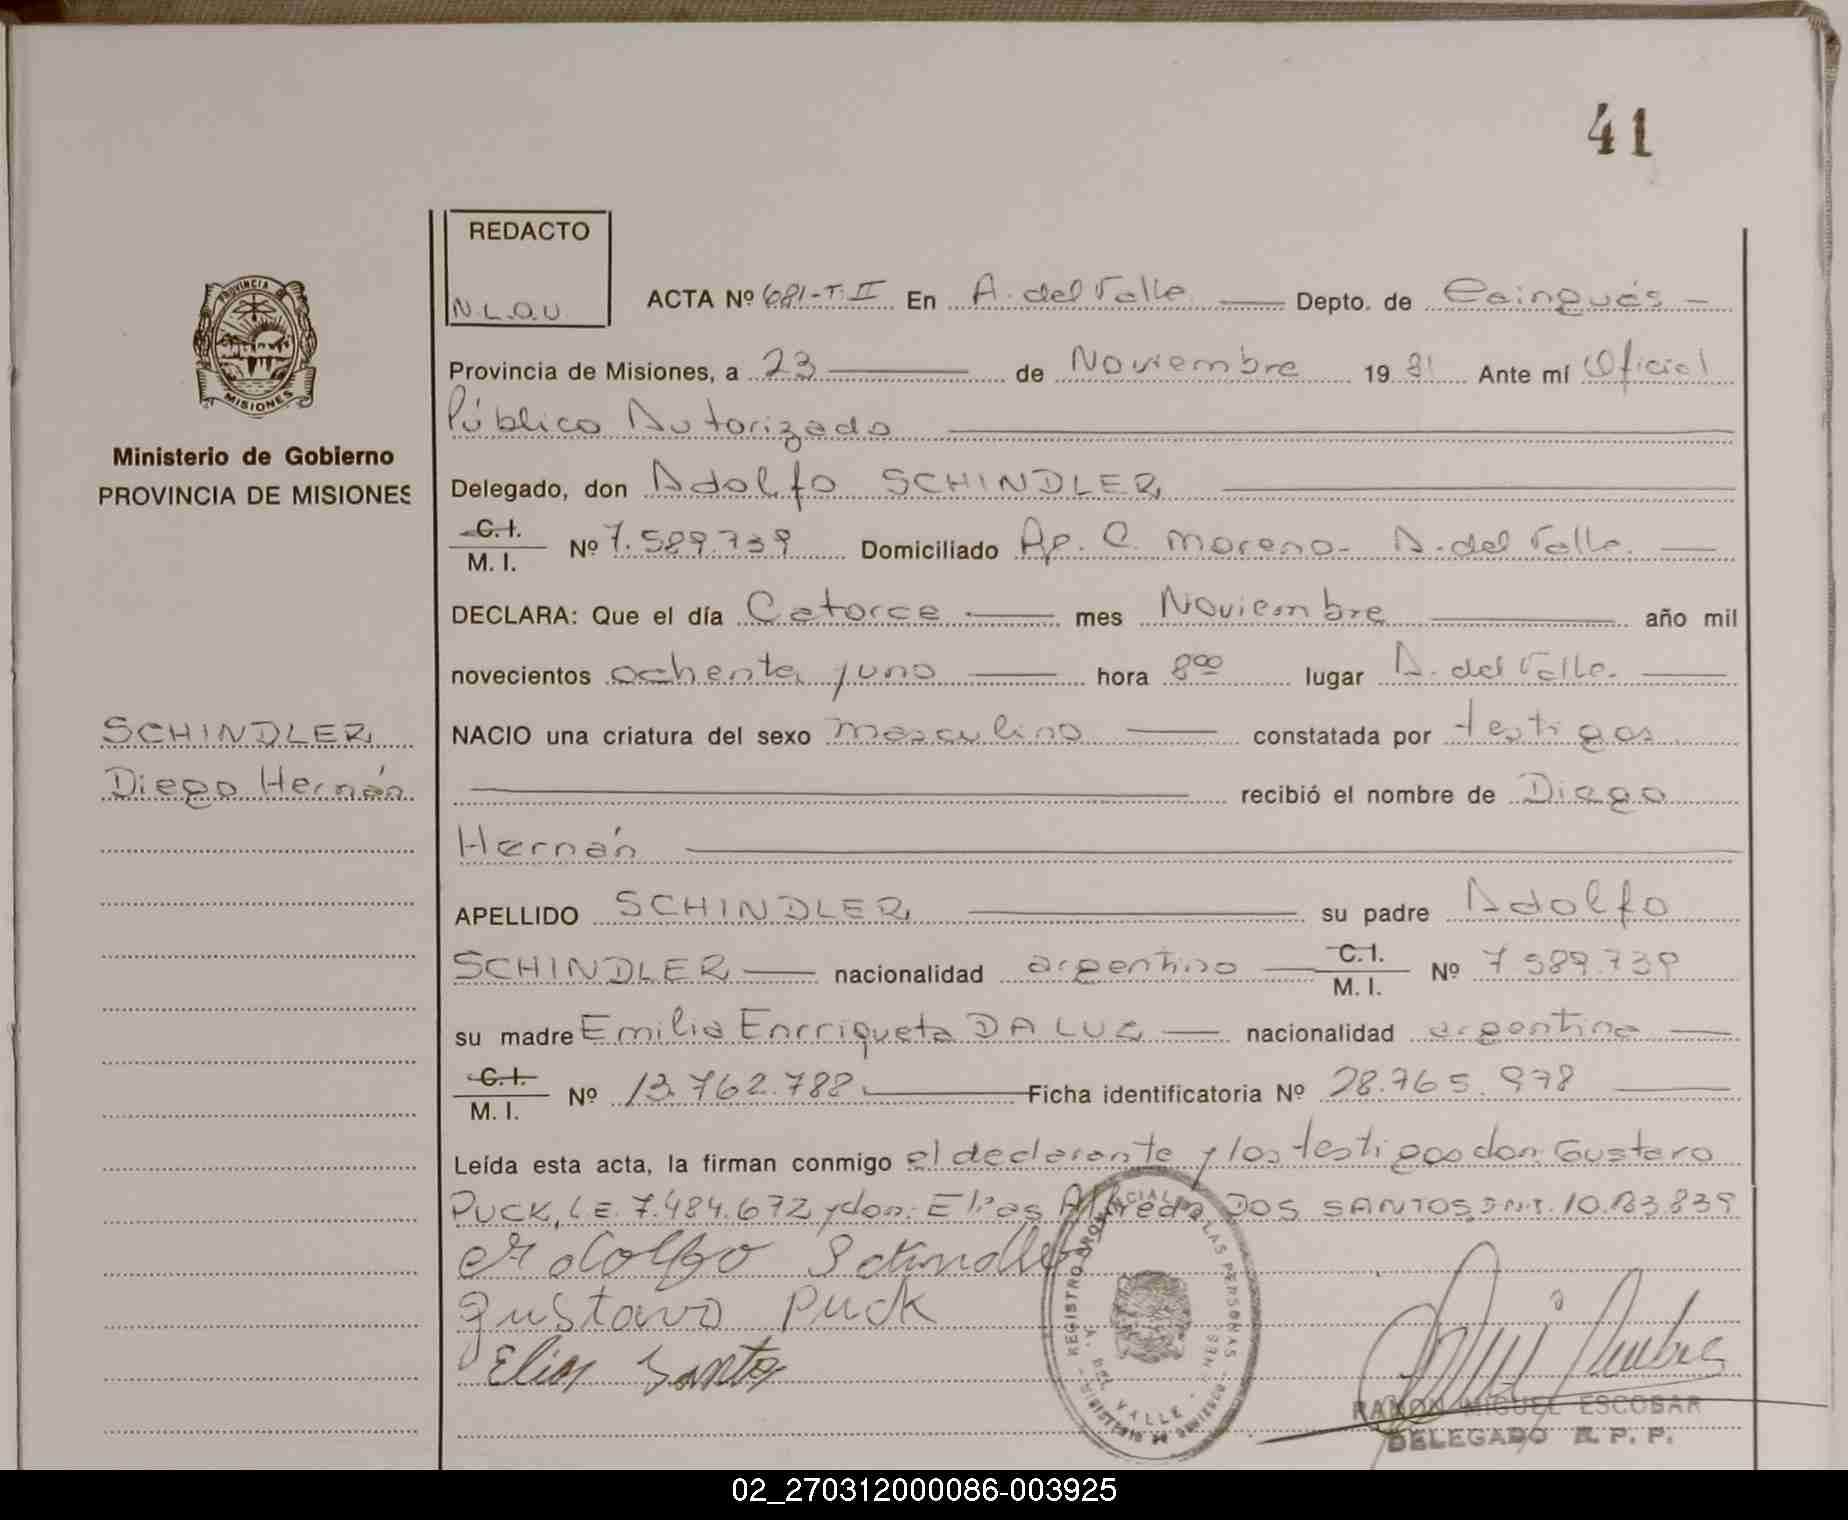 41
REDACTO
N.L.O.U.
PROVINCIA
MISIONES
Ministerio de Gobierno
PROVINCIA DE MISIONES
SCHINDLER
Diego Hernán
ACTA Nº 681-T.II En A. del Valle Depto. de Cainguás
Provincia de Misiones, a 23 de Noviembre 19 81 Ante mí Oficial
Público Autorizado
Delegado, don Adolfo SCHINDLER
C.I.
M.I. Nº 7.589.739 Domiciliado Ap. C. Moreno - A. del Valle.
DECLARA: Que el día Catorce mes Noviembre año mil
novecientos ochenta y uno hora 8oo lugar A. del Valle.
NACIO una criatura del sexo masculino constatada por testigos
recibió el nombre de Diego
Hernán
APELLIDO SCHINDLER su padre Adolfo
SCHINDLER nacionalidad argentino C.I.
M.I. Nº 7.589.739
su madre Emilia Enrriqueta DA LUZ nacionalidad argentina
C.I.
M.I. Nº 13.762.788 Ficha identificatoria Nº 28.765.978
Leída esta acta, la firman conmigo el declarante y los testigos don: Gustavo
PUCK, L.E. 7.484.672 y don: Elías Alfredo DOS SANTOS, D.N.I.
Adolfo Schindler
Gustavo Puck
Elias Santos
REGISTRO PROVINCIAL DE LAS PERSONAS
A. DEL VALLE
RAMON MIGUEL ESCOBAR
DELEGADO R. P. P.
02_270312000086-003925